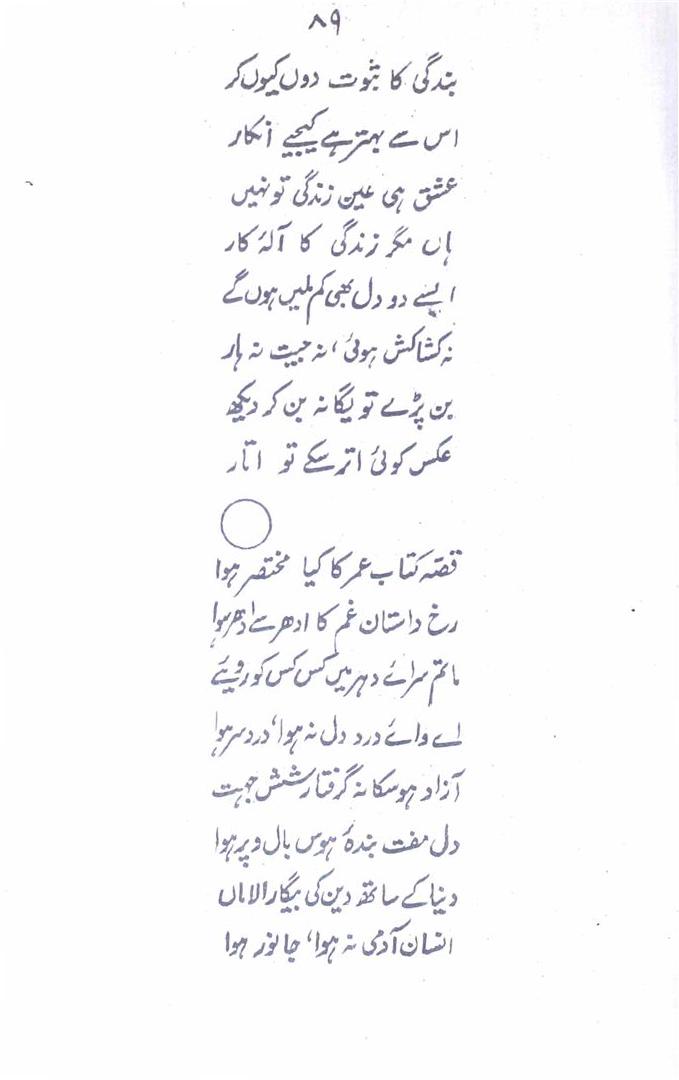 ۸۹
بندگی کا ثبوت دوں کیوں کر
اس سے بہتر ہے کیجیے انکار
عشق ہی عین زندگی تو نہیں
ہاں مگر زندگی کا آلۂ کار
ایسے دو دل بھی کم ملیں ہوں گے
نہ کشاکش ہوئی، نہ جیت نہ ہار
بن پڑے تو یگانہ بن کر دیکھ
عکس کوئی اتر سکے تو اتار
قصّہ کتاب عمر کا کیا مختصر ہوا
رخ داستان غم کا ادھر سے اُدھر ہوا
ماتم سرائے دہر میں کس کس کو رویئے
اے وائے درد دل نہ ہوا، درد سر ہوا
آزاد ہو سکا نہ گرفتار شش جہت
دل مفت بندۂ ہوس بال و پر ہوا
دنیا کے ساتھ دین کی بیگار الاماں
انسان آدمی نہ ہوا، جانور ہوا